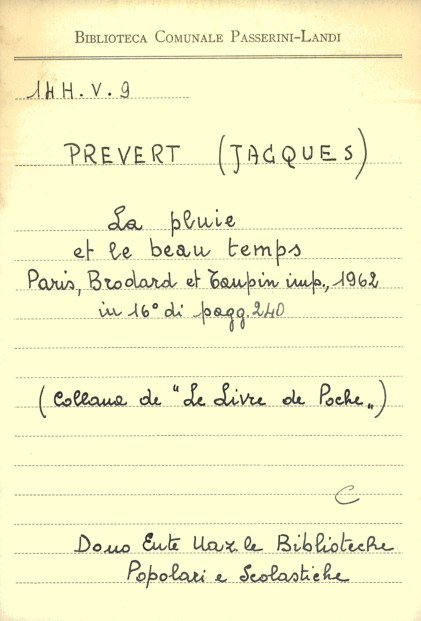 BIBLIOTECA COMUNALE PASSERINI-LANDI
1H H. V. 9
PREVERT (JACQUES)
La pluie
et le beau temps
Paris, Brodard et Taupin imp., 1962
in 16° di pagg. 240
(Collana de "Le Livre de Poche„)
C
Dono Ente Naz.le Biblioteche
Popolari e Scolastiche